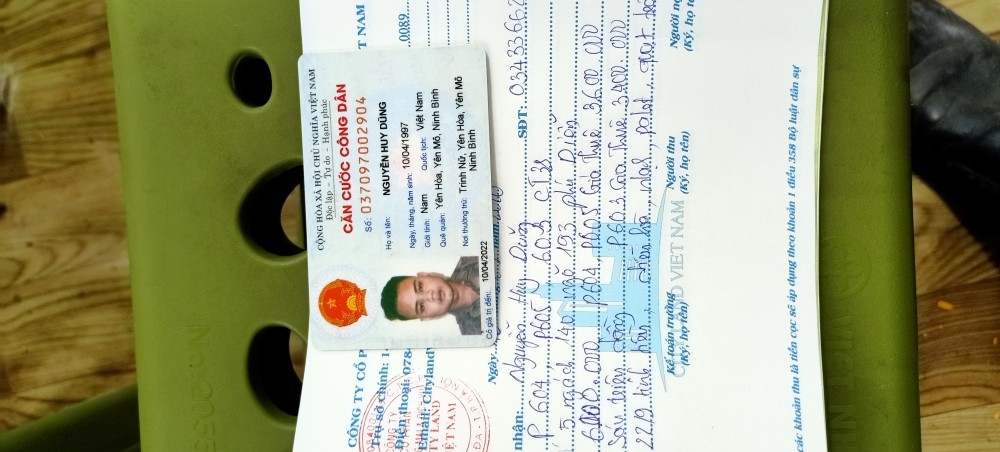 CỘNG HÒA XÃ HỘI CHỦ NGHĨA VIỆT NAM
Độc lập - Tự do - Hạnh phúc
CĂN CƯỚC CÔNG DÂN
Số: 037097002904
Họ và tên:
NGUYỄN HUY DŨNG
Ngày, tháng, năm sinh: 10/04/1997
Giới tính: Nam Quốc tịch: Việt Nam
Quê quán: Yên Hòa, Yên Mô, Ninh Bình
Nơi thường trú: Trình Nữ, Yên Hòa, Yên Mô
Ninh Bình
Có giá trị đến: 10/04/2022
T NAM
0089
CÔNG TY CỔ P
Trụ sở chính: 1
Điện thoại: 078
Email: Cityland
CÔNG TY
TY LAND
VIỆT NAM
Ngày
nhận: Nguyễn Huy Dũng SĐT: 03433662
P 604 P605 N 603
5 ngách 140 ngõ 193 phú Diễn
6.000.000 P.604 P605 Giá Thuê 3.600.000
P603 Giá Thuê 3.400.000
22.19
Kế toán trưởng
(Ký, họ tên)
Người thu
(Ký, họ tên)
Người nộ
(Ký, họ tê
VIET NAM
các khoản thu là tiền cọc sẽ áp dụng theo khoản 1 điều 358 Bộ luật dân sự